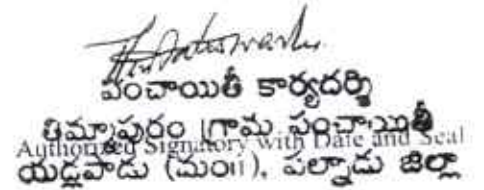 పంచాయితీ కార్యదర్శి
తిమ్మాపురం గ్రామ పంచాయితీ
Authorized Signatory with Date and Seal
యడ్లపాడు (మం॥), పల్నాడు జిల్లా